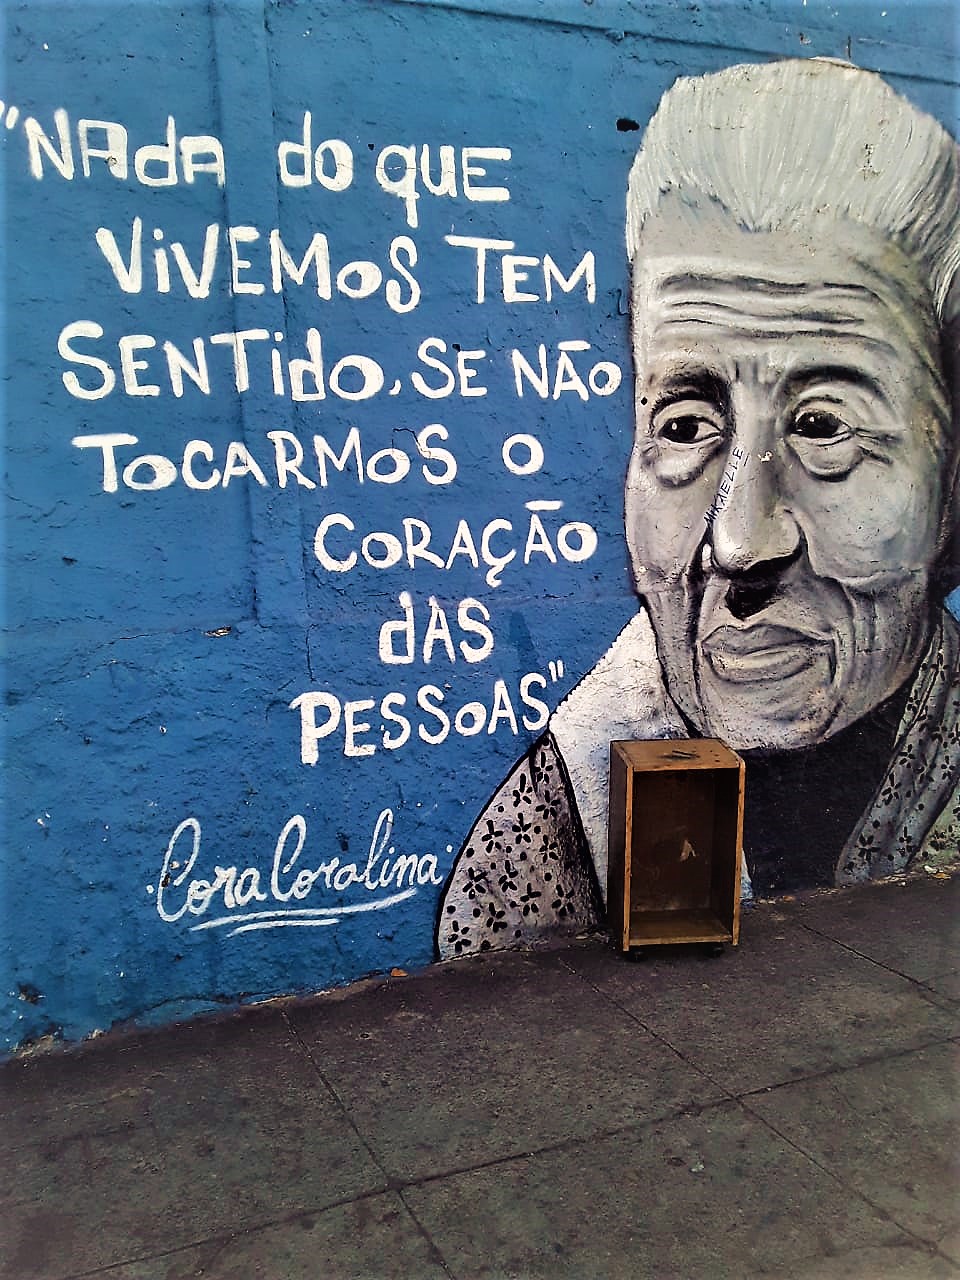 "NAdA do QUE
ViVEMOS TEM
SENTido, SE NÃO
TOCARMOS O
CORAÇÃO
dAS
PESSOAS"
Cora Coralina
MIKAELLE